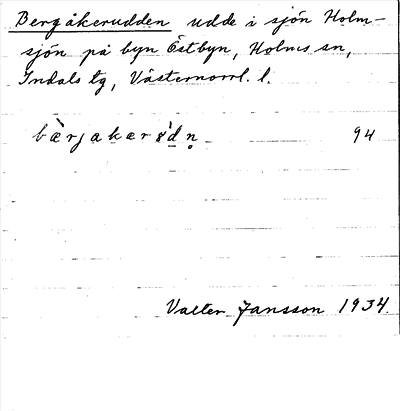 Bergåkerudden udde i sjön Holm-
sjön på byn Östbyn, Holms sn,
Indals tg, Västernorrl. l.
bæ̀rjakær 94
Valter Jansson 1934.